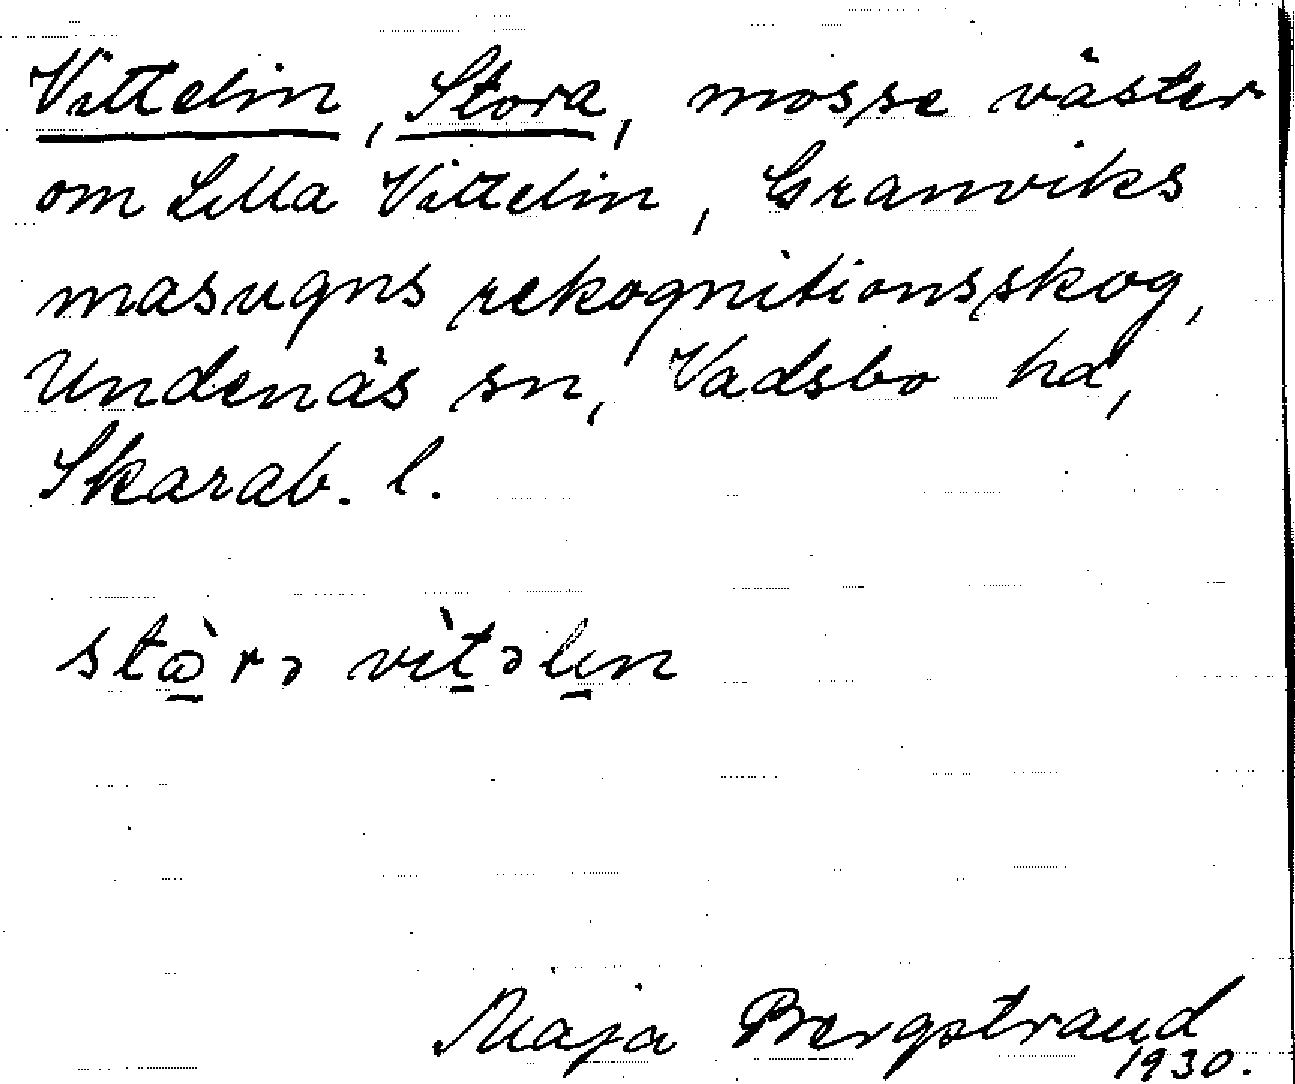 Vittelin, Stora, mosse väster
om Lilla Vittelin, Granviks
masugns rekognitionsskog,
Undenäs sn, Vadsbo hd,
Skarab. l.
stɷ̀rə vìtəlin
Maja Bergstrand
1930.